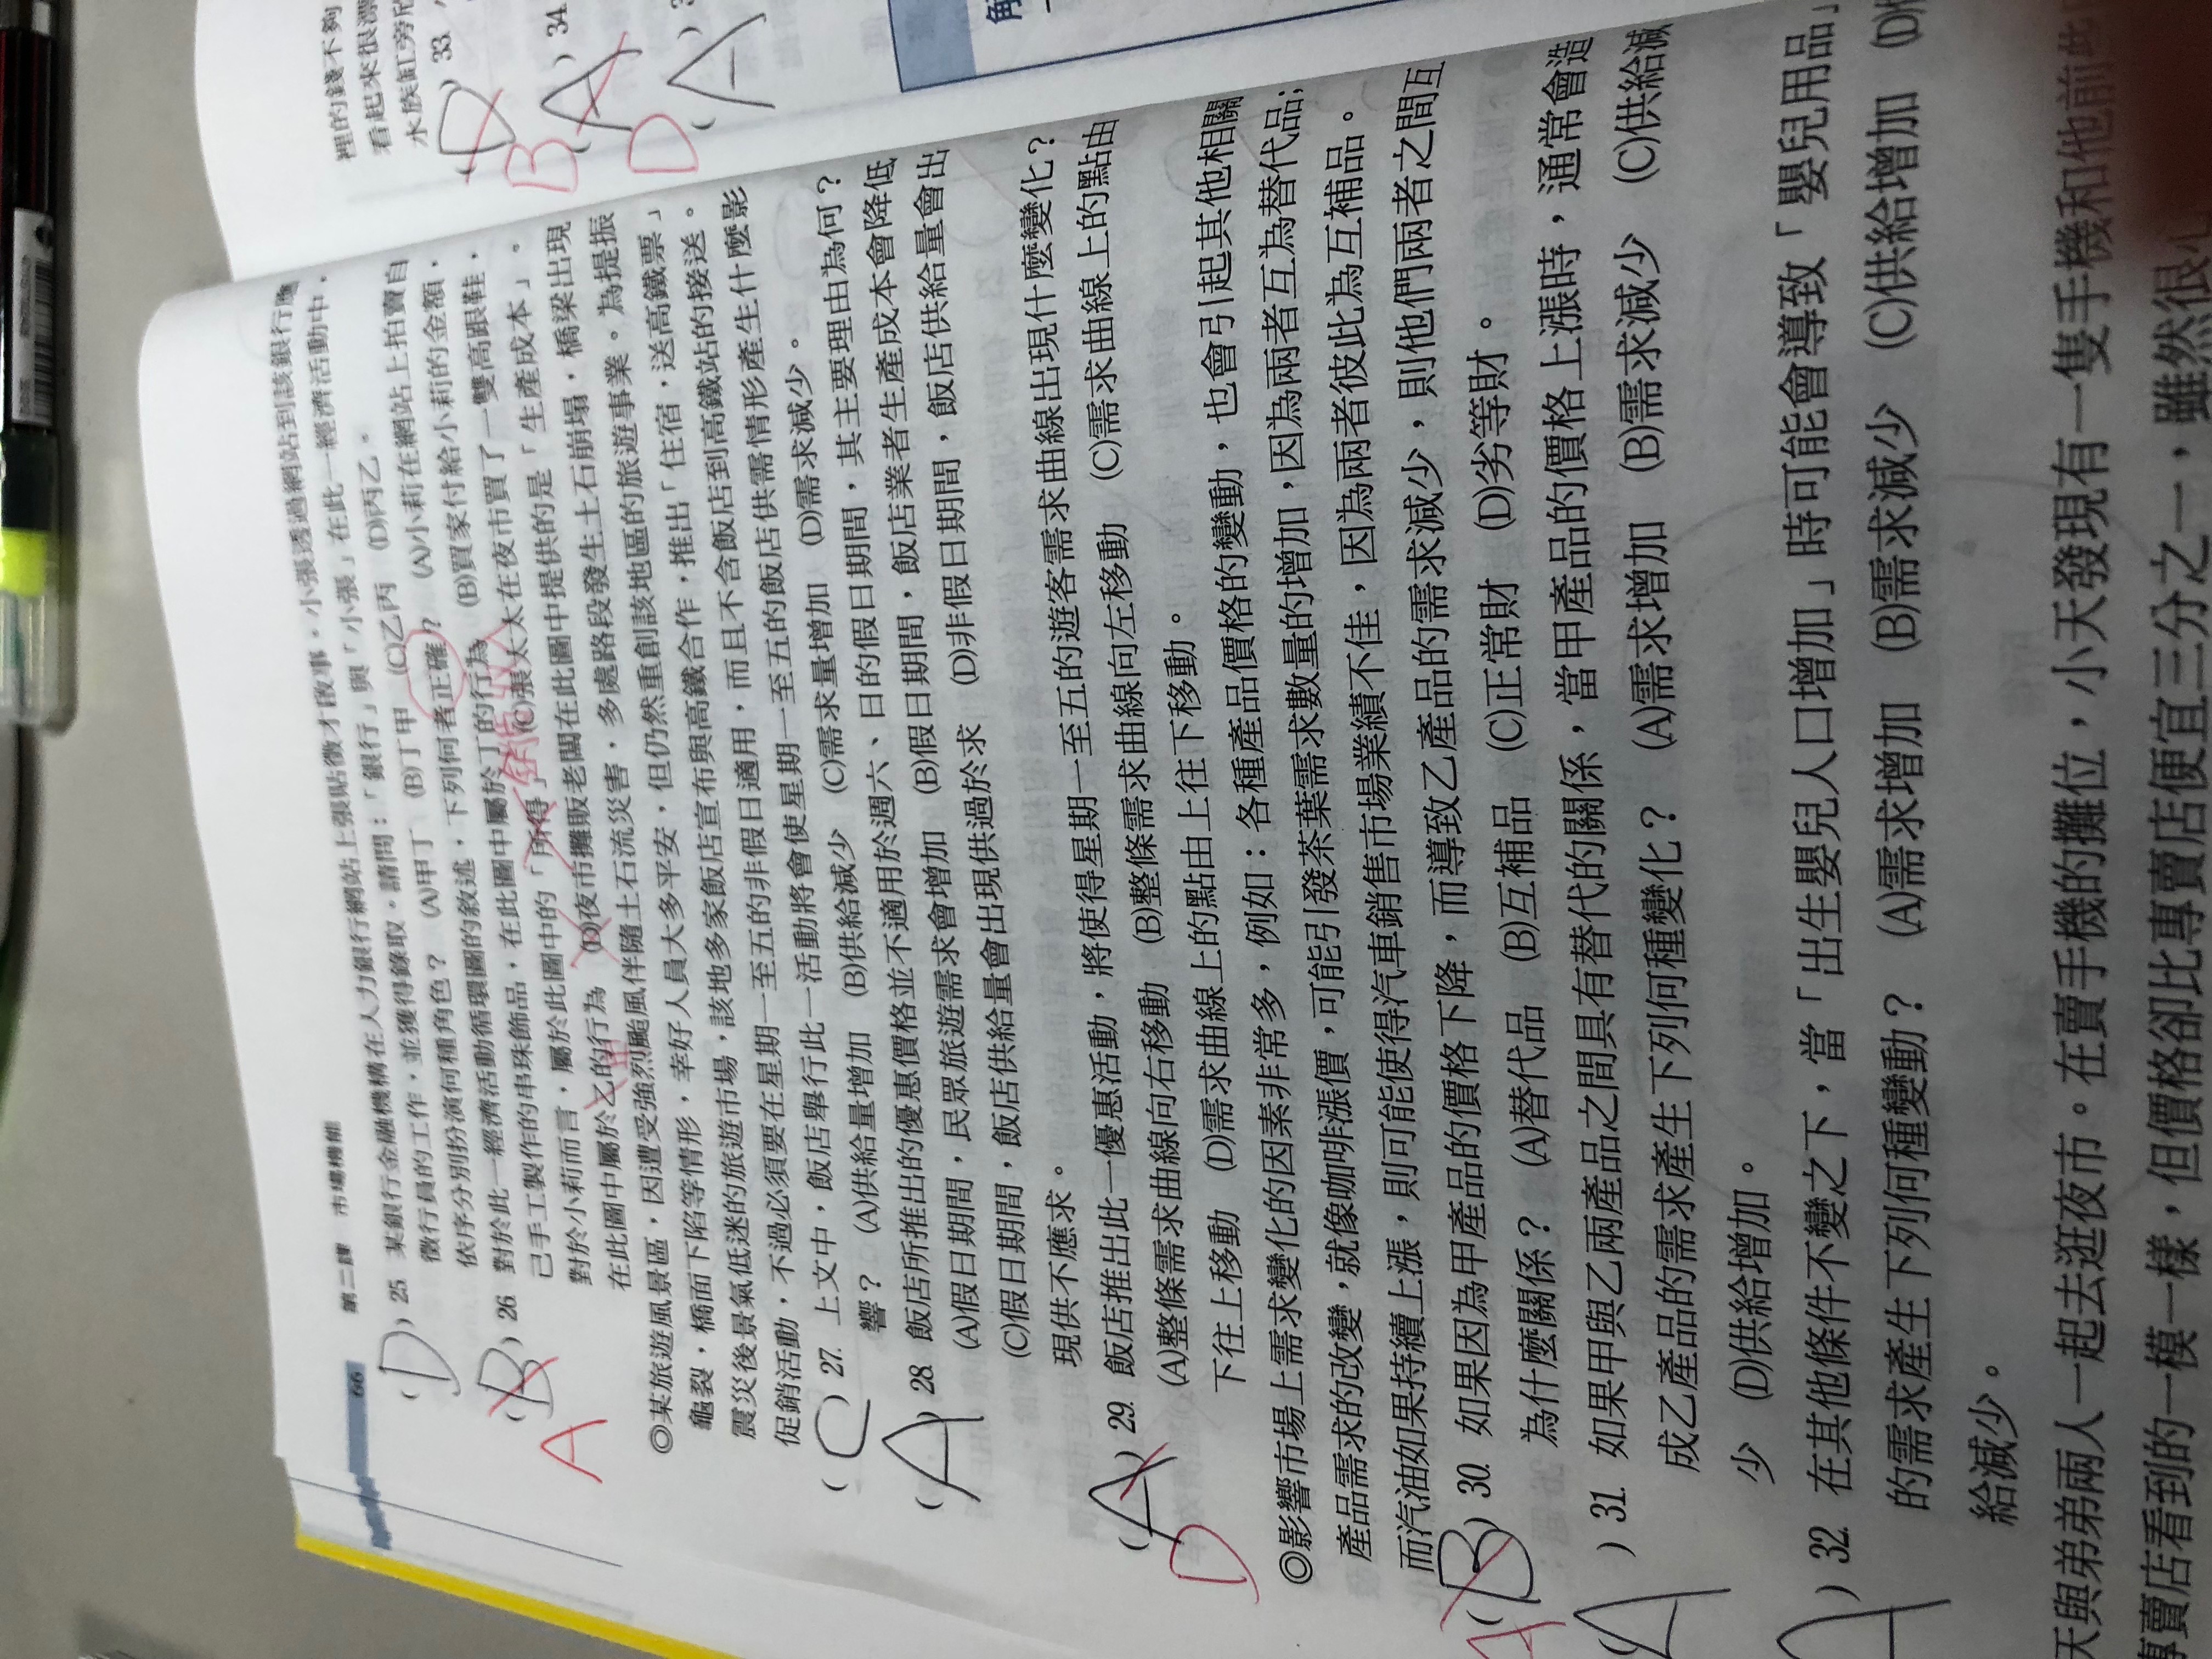 66 第二課 市場機能
(D) 25. 某銀行金融機構在人力銀行網站上張貼徵才啟事，小張透過網站到該銀行應
徵行員的工作，並獲得錄取。請問：「銀行」與「小張」在此一經濟活動中，
依序分別扮演何種角色？ (A)甲丁 (B)丁甲 (C)乙丙 (D)丙乙。
(B) 26. 對於此一經濟活動循環圖的敘述，下列何者正確？ (A)小莉在網站上拍賣自
A
己手工製作的串珠飾品，在此圖中屬於丁的行為 (B)買家付給小莉的金額，
對於小莉而言，屬於此圖中的「所得」 (C)張太太在夜市買了一雙高跟鞋，
在此圖中屬於乙的行為 (D)夜市攤販老闆在此圖中提供的是「生產成本」。
◎某旅遊風景區，因遭受強烈颱風伴隨土石流災害，多處路段發生土石崩塌，橋梁出現
龜裂，橋面下陷等情形，幸好人員大多平安，但仍然重創該地區的旅遊事業。為提振
震災後景氣低迷的旅遊市場，該地多家飯店宣布與高鐵合作，推出「住宿，送高鐵票」
促銷活動，不過必須要在星期一至五的非假日適用，而且不含飯店到高鐵站的接送。
(C) 27. 上文中，飯店舉行此一活動將會使星期一至五的飯店供需情形產生什麼影
響？ (A)供給量增加 (B)供給減少 (C)需求量增加 (D)需求減少。
(A) 28. 飯店所推出的優惠價格並不適用於週六、日的假日期間，其主要理由為何？
(A)假日期間，民眾旅遊需求會增加 (B)假日期間，飯店業者生產成本會降低
(C)假日期間，飯店供給量會出現供過於求 (D)非假日期間，飯店供給量會出
現供不應求。
(A) 29. 飯店推出此一優惠活動，將使得星期一至五的遊客需求曲線出現什麼變化？
D
(A)整條需求曲線向右移動 (B)整條需求曲線向左移動 (C)需求曲線上的點由
下往上移動 (D)需求曲線上的點由上往下移動。
◎影響市場上需求變化的因素非常多，例如：各種產品價格的變動，也會引起其他相關
產品需求的改變，就像咖啡漲價，可能引發茶葉需求數量的增加，因為兩者互為替代品；
而汽油如果持續上漲，則可能使得汽車銷售市場業績不佳，因為兩者彼此為互補品。
(B) 30. 如果因為甲產品的價格下降，而導致乙產品的需求減少，則他們兩者之間互
A
為什麼關係？ (A)替代品 (B)互補品 (C)正常財 (D)劣等財。
(A) 31. 如果甲與乙兩產品之間具有替代的關係，當甲產品的價格上漲時，通常會造
成乙產品的需求產生下列何種變化？ (A)需求增加 (B)需求減少 (C)供給減
少 (D)供給增加。
(A) 32. 在其他條件不變之下，當「出生嬰兒人口增加」時可能會導致「嬰兒用品」
的需求產生下列何種變動？ (A)需求增加 (B)需求減少 (C)供給增加 (D)供
給減少。
天與弟弟兩人一起去逛夜市。在賣手機的攤位，小天發現有一隻手機和他前此
專賣店看到的一模一樣，但價格卻比專賣店便宜三分之一，雖然很心
裡的錢不夠
看起來很漂
水族缸旁欣
(D) 33.
(A) 34
B
(A) 3
D
解